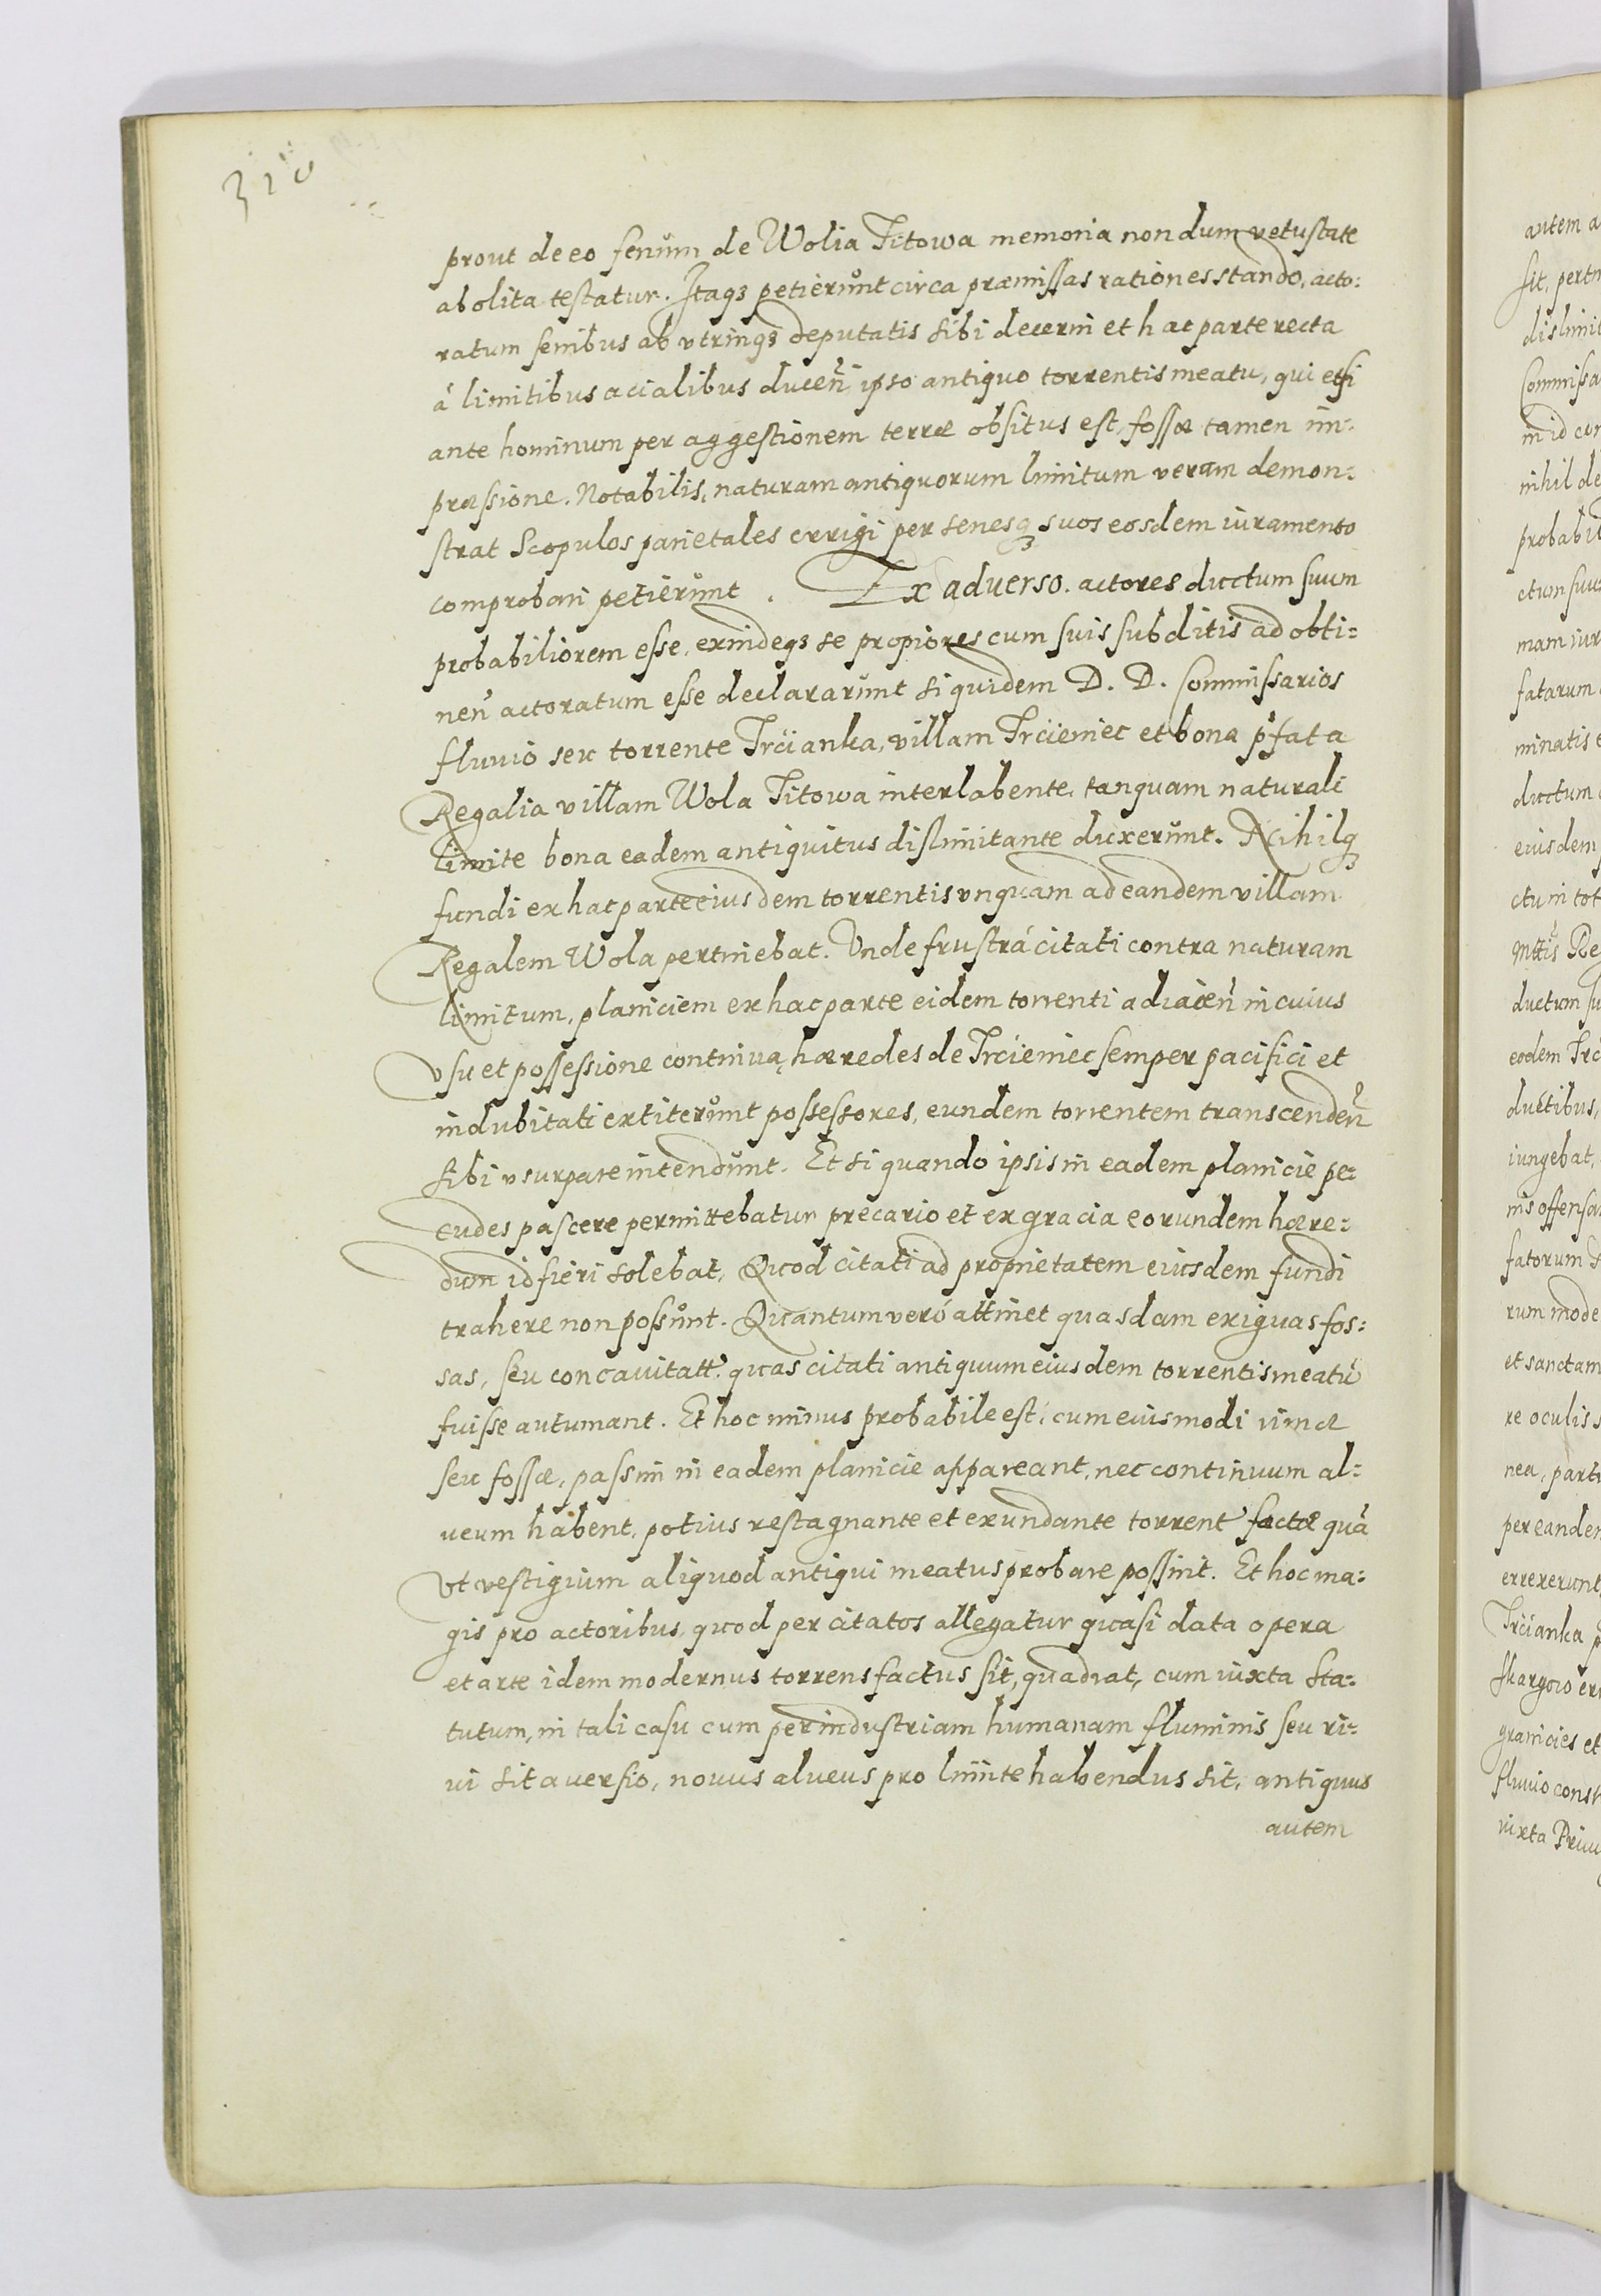 310
prout de eo senum de Wolia Titowa memoria nondum vetustate
abolita testatur. Itaqꝫ petierunt circa præmissas rationes stando, acto:
ratum senibus ab vtrinqꝫ deputatis sibi decerni et hac parte recta
á limitibus acialibus ducen̄ ipso antiquo torrentis meatu, qui etsi
ante hominum per aggestionem terræ obsitus est, fossæ tamen im:
præssione. Notabilis, naturam antiquorum limitum veram demon:
strat Scopulos parietales errigi per senesqꝫ suos eosdem iuramento
comprobari petierunt. Ex adverso. actores ductum suum
probabiliorem esse, exindeqꝫ se propiores cum suis subditis ad obti:
nen̄ actoratum esse declararunt siquidem D. D. Commissarios
fluvio seu torrente Trcianka, villam Trcieniec et bona p̄fata
Regalia villam Wola Titowa interlabente, tanquam naturali
limite bona eadem antiquitus dislimitante duxerunt. Nihilqꝫ
fundi ex hac parte eiusdem torrentis vnquam ad eandem villam
Regalem Wola pertinebat. Vnde frustrá citati contra naturam
limitum, planiciem ex hac parte eidem torrenti adiacen̄ in cuius
vsu et possessione continua, hæredes de Trcieniec semper pacifici et
indubitati extiterunt possessores, eundem torrentem transcenden̄
sibi vsurpare intendunt. Et si quando ipsis in eadem planicie pe:
cudes pascere permittebatur precario et ex gracia eorundem hære:
dum id fieri solebat, Quod citati ad proprietatem eiusdem fundi
trahere non possunt. Quantum veró attinet quasdam exiguas fos:
sas, seu concavitatt. quas citati antiquum eiusdem torrentis meatū
fuisse autumant. Et hoc minus probabile est, cum eiusmodi rimæ
seu fossæ, passim in eadem planicie appareant, nec continuum al:
ueum habent, potius restagnante et exundante torrent factæ quā
vt vestigium aliquod antiqui meatus probare possint. Et hoc ma:
gis pro actoribus, quod per citatos allegatur quasi data opera
et arte idem modernus torrens factus sit, quadrat, cum iuxta Sta:
tutum, in tali casu cum per industriam humanam fluminis seu ri:
ui sit aversio, nouus alveus pro limite habendus sit, antiquus
autem
autem a
sit, pertn
dislimit
Commissa
in id con
nihil de
probabil
ctum suu
mam iur
fatarum
minatis e
ductum
eiusdem
ctu in tot
Mttis Re
ductum su
eodem Trc
ductibus,
iungebat,
nis offensa
fatorum
rum mode
et sanctam
re oculis s
nea, parti
per eandem
errexerunt
Trcianka p
granicies et
fluuio const
iuxta Priui